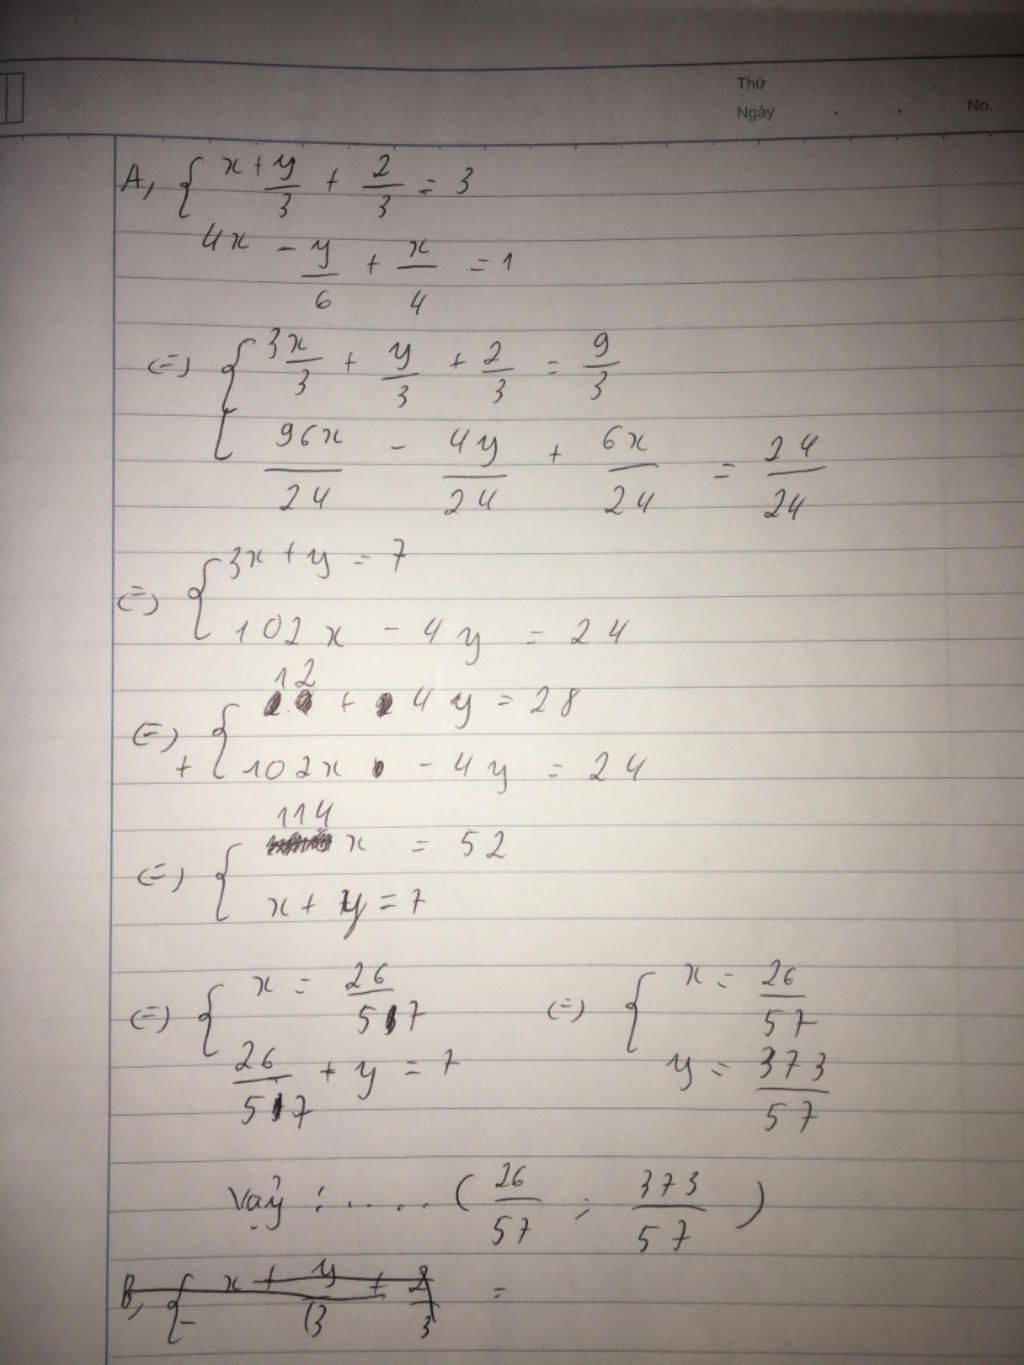 Thứ
Ngày . . No.
A, { x + y/3 + 2/3 = 3
4x - y/6 + x/4 = 1
(=) { 3x/3 + y/3 + 2/3 = 9/3
96x/24 - 4y/24 + 6x/24 = 24/24
(=) { 3x + y = 7
102x - 4y = 24
(=) { 12 + 4y = 28
+ 102x - 4y = 24
(=) { 114 x = 52
x + y = 7
(=) { x = 26/57 (=) { x = 26/57
26/57 + y = 7 y = 373/57
Vậy : ..... ( 26/57 ; 373/57 )
B, { x + y/3 + 2/3 =